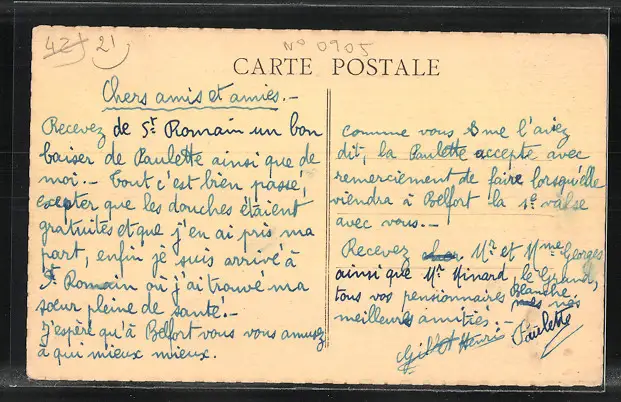 42 21
N° 0905
CARTE POSTALE
Chers amis et amies.-
Recevez de St Romain un bon
baiser de Paulette ainsi que de
moi.- Tout c'est bien passé,
excepter que les douches étaient
gratuites et que j'en ai pris ma
part, enfin je suis arrivé à
St Romain où j'ai trouvé ma
sœur pleine de santé.-
J'espère qu'à Belfort vous vous amusez
à qui mieux mieux.
Comme vous me l'aviez
dit, la Paulette accepte avec
remerciement de faire lorsqu'elle
viendra à Belfort la 1e valse
avec vous.-
Recevez Mr et Mme Georges
ainsi que Mr Minard le Grand,
tous vos pensionnaires Blanche, mes
meilleures amitiés -
Gillot Henri Paulette